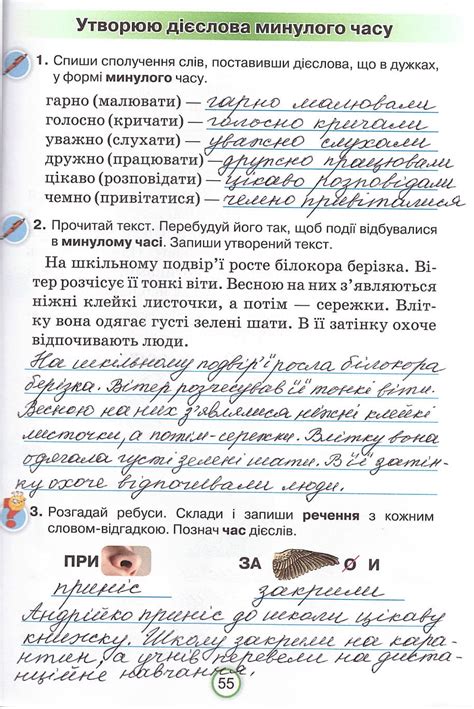 Утворюю дієслова минулого часу
1. Спиши сполучення слів, поставивши дієслова, що в дужках,
у формі минулого часу.
гарно (малювати) — гарно малювали
голосно (кричати) — голосно кричали
уважно (слухати) — уважно слухали
дружно (працювати) — дружно працювали
цікаво (розповідати) — цікаво розповідали
чемно (привітатися) — чемно привіталися
2. Прочитай текст. Перебудуй його так, щоб події відбувалися
в минулому часі. Запиши утворений текст.
На шкільному подвір’ї росте білокора берізка. Ві-
тер розчісує її тонкі віти. Весною на них з’являються
ніжні клейкі листочки, а потім — сережки. Вліт-
ку вона одягає густі зелені шати. В її затінку охоче
відпочивають люди.
На шкільному подвір'ї росла білокора
берізка. Вітер розчесував її тонкі віти.
Весною на них з'являлися ніжні клейкі
листочки, а потім-сережки. Влітку вона
одягала густі зелені шати. В її затін-
ку охоче відпочивали люди.
3. Розгадай ребуси. Склади і запиши речення з кожним
словом-відгадкою. Познач час дієслів.
ПРИ ЗА О И
приніс закрили
Андрійко приніс до школи цікаву
книжку. Школу закрили на кара-
нтин, а учнів перевели на диста-
нційне навчання.
55